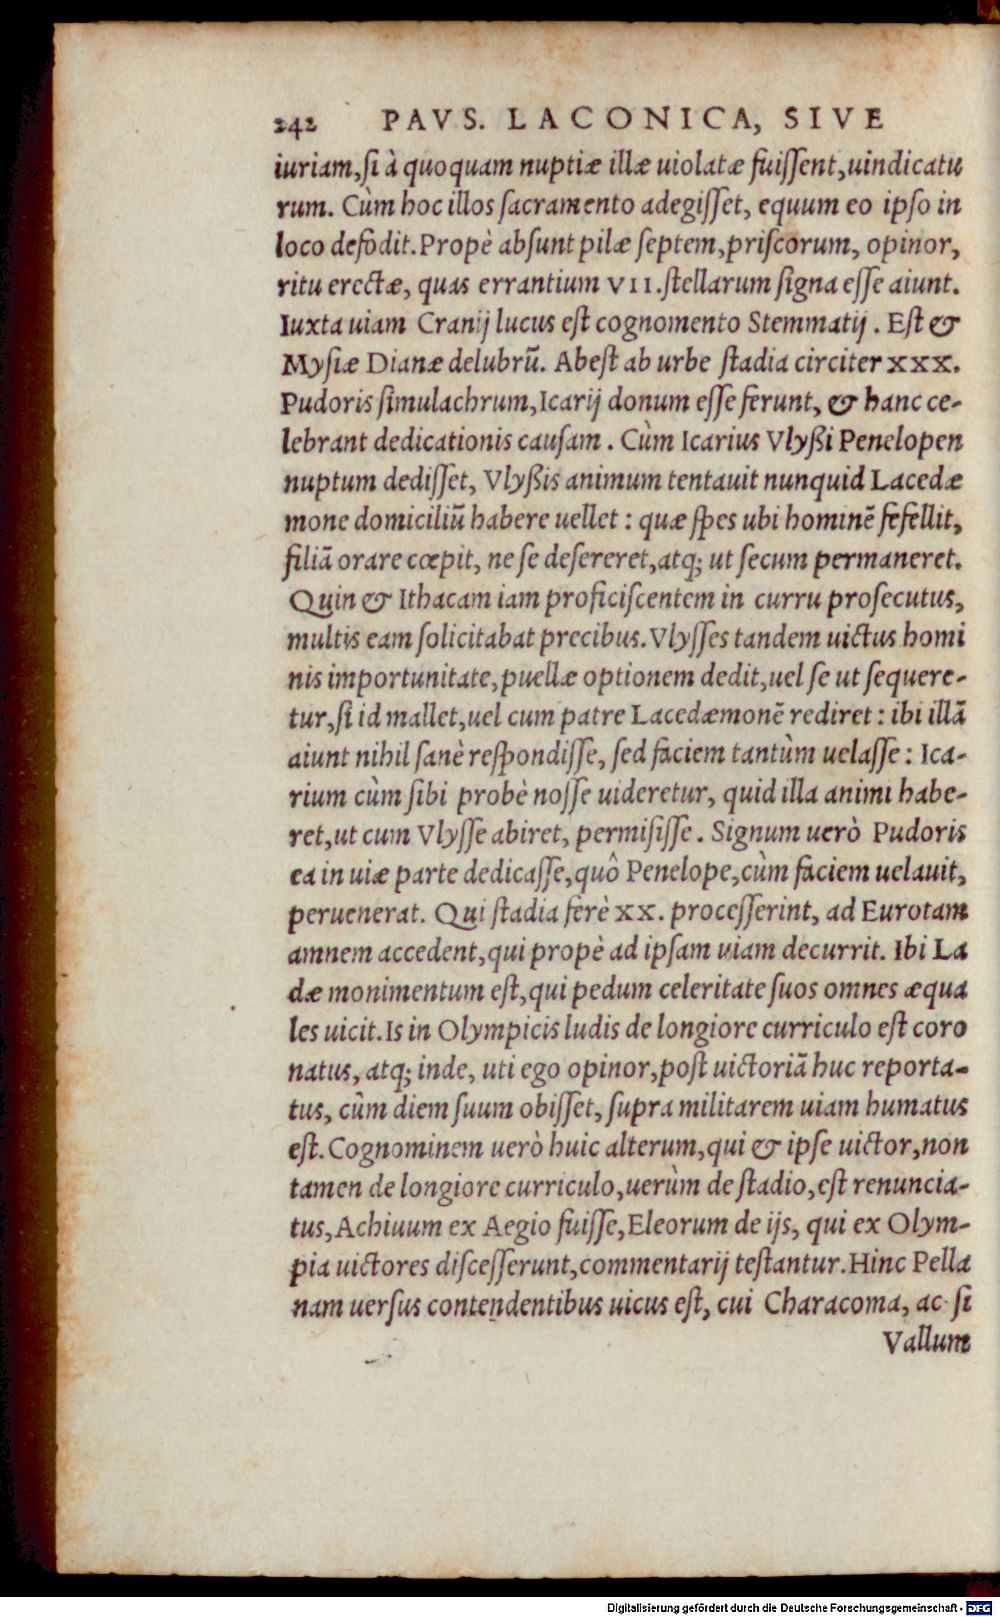 242 PAVS. LACONICA, SIVE
iuriam, si à quoquam nuptiæ illæ uiolatæ fuissent, uindicatu
rum. Cùm hoc illos sacramento adegisset, equum eo ipso in
loco defodit. Propè absunt pilæ septem, priscorum, opinor,
ritu erectæ, quas errantium VII. stellarum signa esse aiunt.
Iuxta uiam Cranij lucus est cognomento Stemmatij. Est &
Mysiæ Dianæ delubrũ. Abest ab urbe stadia circiter XXX.
Pudoris simulachrum, Icarij donum esse ferunt, & hanc ce-
lebrant dedicationis causam. Cùm Icarius Vlyßi Penelopen
nuptum dedisset, Vlyßis animum tentauit nunquid Lacedæ
mone domiciliũ habere uellet: quæ spes ubi hominẽ fefellit,
filiã orare cœpit, ne se desereret, atq; ut secum permaneret.
Quin & Ithacam iam proficiscentem in curru prosecutus,
multis eam solicitabat precibus. Vlysses tandem uictus homi
nis importunitate, puellæ optionem dedit, uel se ut sequere-
tur, si id mallet, uel cum patre Lacedæmonẽ rediret: ibi illã
aiunt nihil sanè respondisse, sed faciem tantùm uelasse: Ica-
rium cùm sibi probè nosse uideretur, quid illa animi habe-
ret, ut cum Vlysse abiret, permisisse. Signum uerò Pudoris
ea in uiæ parte dedicasse, quô Penelope, cùm faciem uelauit,
peruenerat. Qui stadia ferè XX. processerint, ad Eurotam
amnem accedent, qui propè ad ipsam uiam decurrit. Ibi La
dæ monimentum est, qui pedum celeritate suos omnes æqua
les uicit. Is in Olympicis ludis de longiore curriculo est coro
natus, atq; inde, uti ego opinor, post uictoriã huc reporta-
tus, cùm diem suum obisset, supra militarem uiam humatus
est. Cognominem uerò huic alterum, qui & ipse uictor, non
tamen de longiore curriculo, uerùm de stadio, est renuncia-
tus, Achiuum ex Aegio fuisse, Eleorum de ijs, qui ex Olym-
pia uictores discesserunt, commentarij testantur. Hinc Pella
nam uersus contendentibus uicus est, cui Characoma, ac si
Vallum
Digitalisierung gefördert durch die Deutsche Forschungsgemeinschaft - DFG